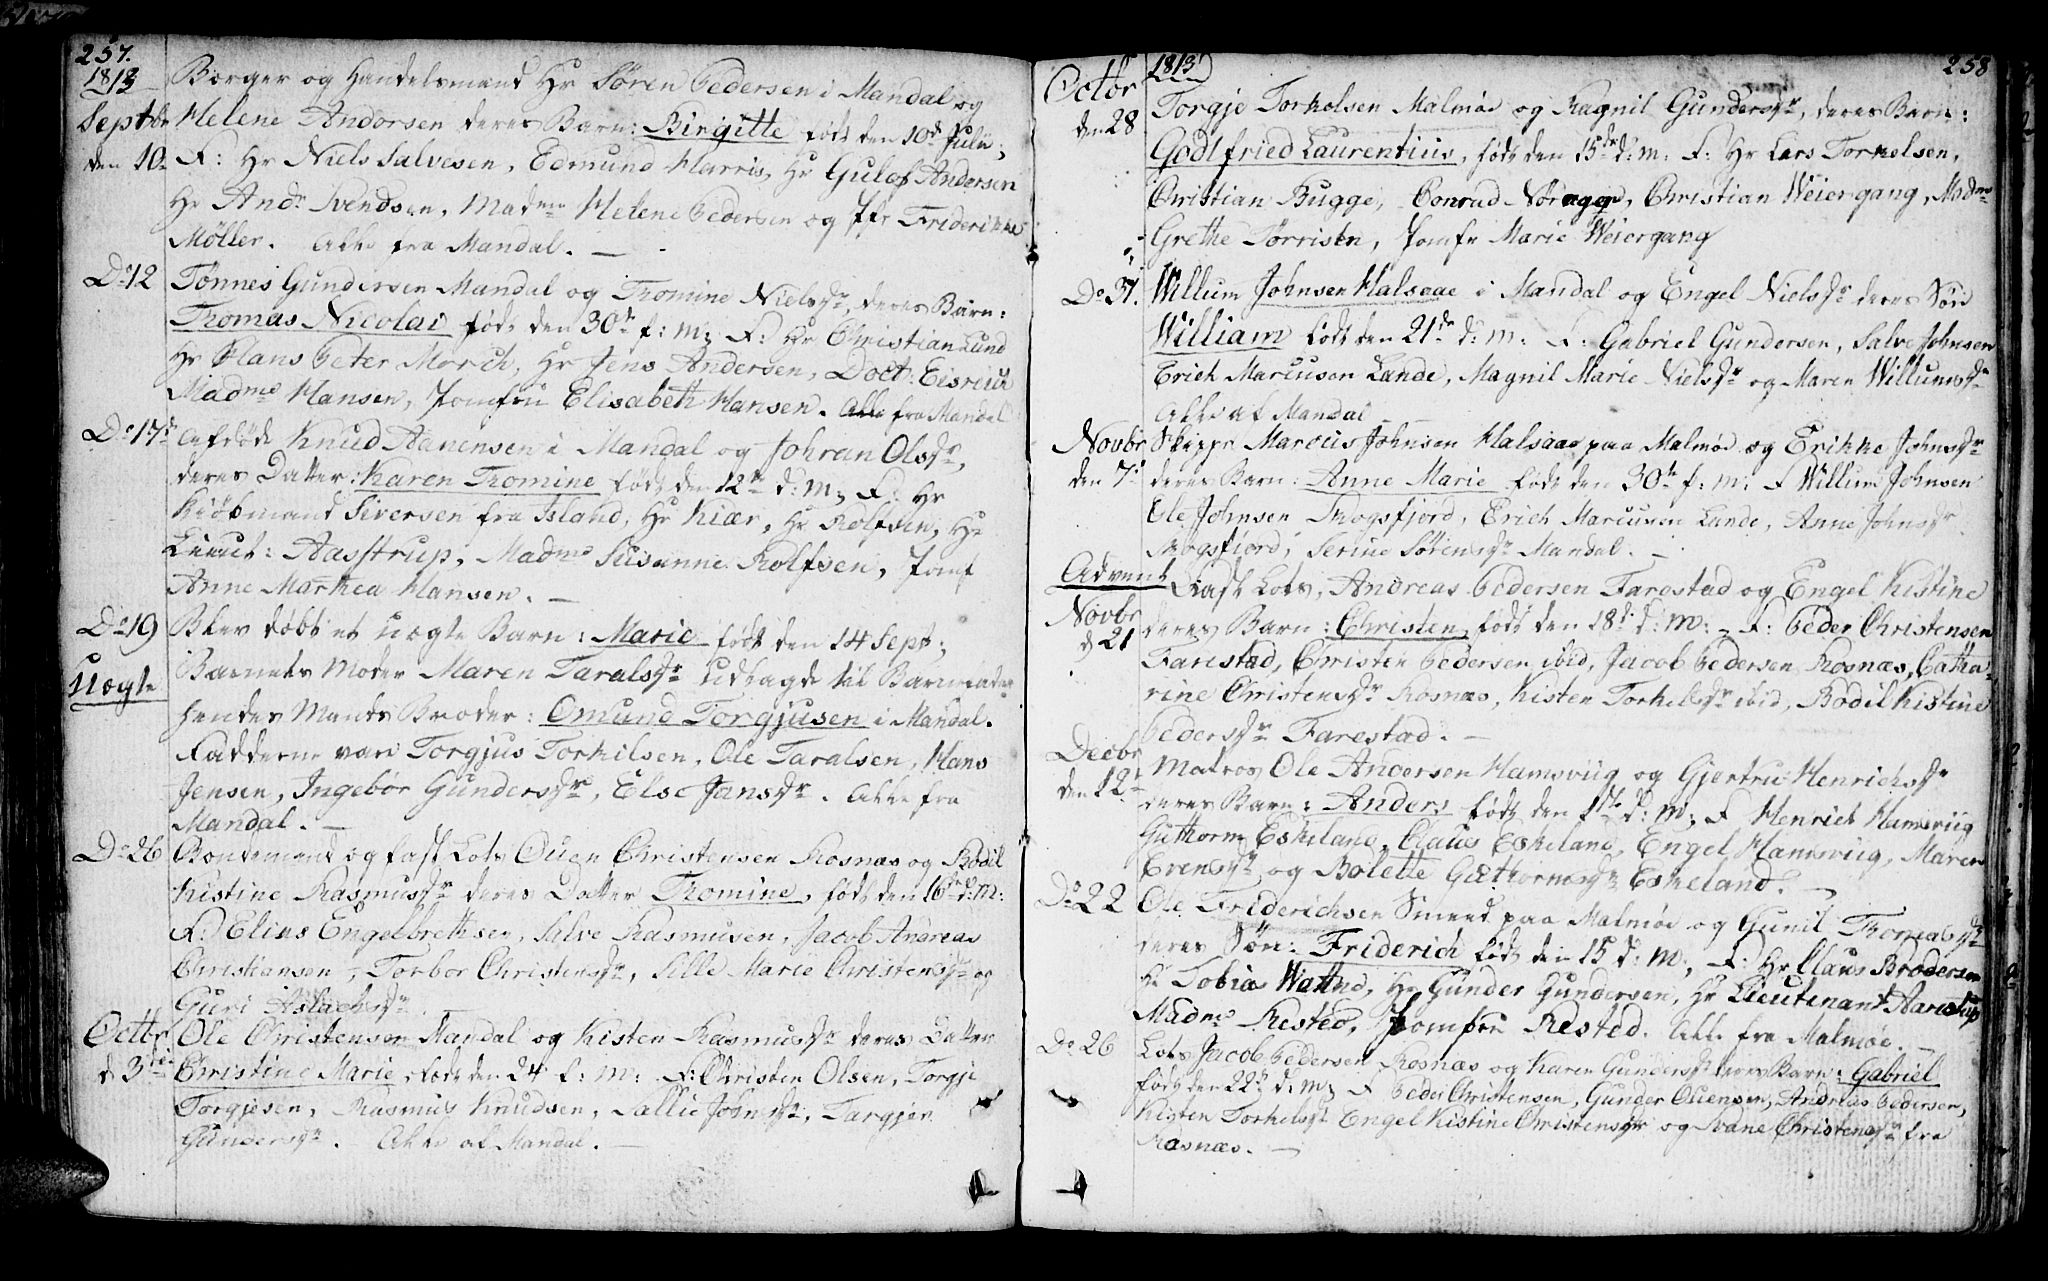 257.
1813
Borger og Handelsmand Hr Søren Pedersen i Mandal og
Septbr Helene Andersen deres Barn: Birgitte født den 10de Julii;
den 10. F: Hr Niels Salvesen, Edmund Harris, Hr Gulof Andersen
Hr Andr Svendsen, Madme Helene Pedersen og Jfr Friderikke
Møller. Alle fra Mandal. —
Do 12 Tønnes Gundersen Mandal og Tromine Nielsdr, deres Barn:
Thomas Nicolai født den 30te f: m; F: Hr Christian Lund
Hr Hans Peter Morch, Hr Jens Andersen, Doct: Eisrich
Madme Hansen, Jomfru Elisabeth Hansen. Alle fra Mandal
Do 17de afdøde Knud Aanensen i Mandal og Johran Olsdr,
deres Datter: Karen Tromine født den 12te d: m; F: Hr
Kiøbmand Siversen fra Island, Hr Kiær, Hr Rolfsen, Hr
Lieut: Aasstrup, Madme Susanne Rolfsen, Jomf
Anne Marthea Hansen. —
Do 19 Blev døbt et uægte Barn: Marie født den 14 Sept;
Uægte Barnets Moder Maren Taralsdr udlagde til Barnefader
hendes Mands Broder: Omund Torgjusen i Mandal.
Fadderne vare Torgjus Torkilsen, Ole Taralsen, Hans
Jensen, Ingebør Gundersdr, Else Jansdr. Alle fra
Mandal. —
Do 26 Bondemand og fast Lots Ouen Christensen Rosnæs og Bodil
Kistine Rasmusdr deres Datter Tromine, født den 16de d: m:
F: Elias Engelbrethsen, Salve Rasmusen, Jacob Andreas
Christiansen, Torbor Christensdr, Sille Marie Christensdr og
Guri Aslachsdr.
Octbr Ole Christensen Mandal og Kisten Rasmusdr deres Datter
d 3die Christine Marie, født den 24 f: m: F: Christen Olsen, Torgje
Torgjesen, Rasmus Knudsen, Sallie Josnsdr, Targjer
Gundersdr. — Alle af Mandal. —
1813 258
Octbr
den 28 Torgje Torkolsen Malmøe og Ragnil Gundersdr, deres Barn:
Godlfried Laurentius, født den 15de d: m: F: Hr Lars Torkelsen,
Christian Bugge, Conrad Christian Weiergang, Madme
Grethe Tørrisen, Jomfr Marie Weiergang
Do 31. Willum Johnsen Halsaae i Mandal og Engel Nielsdr deres Søn
William født den 21de d: m: F: Gabriel Gundersen, Salve Johnsen
Erich Marcusen Lande, Magnil Marie Nielsdr og Maren Willumsdr
Alle af Mandal —
Novbr Skippr Marcus Johnsen Halsaae paa Malmøe og Erikke Johnsdr
den 7de deres Barn: Anne Marie født den 30te f: m: F Willum Johnsen
Ole Johnsen Skogsfjord, Erich Marcusen Lande, Anne Johnsdr
Skogsfjord, Serine Sørensdr Mandal. —
Advent Fast Lots, Andreas Pedersen Farestad og Engel Kistine
Novbr deres Barn: Christen, født den 18de d: m: F: Peder Christensen
d 21 Farestad, Christen Pedersen ibid, Jacob Pedersen Rosnæs, Catha-
rine Christensdr Rosnæs, Kisten Torkelsdr ibid, Bodil Kistine
Pedersdr Farestad. —
Decbr Matros Ole Andersen Hamsviig og Gjertru Henrichsdr
den 12te deres Barn: Anders født den 1ste d: m; F Henrich Hamsviig
Guthorm Eskeland, Claus Eskeland, Engel Hamsviig, Maren
Evensdr og Bolette Guthormsdr Eskeland. —
Do 22 Ole Friderichsen Smeed paa Malmøe og Gunil Thomasdr
deres Søn: Friderich født den 15 d: m; F: Hr Claus Brodersen
Hr Tobias Wattne, Hr Gunder Gundersen, Hr Lieutenant Aarestrup
Madme Rested, Jomfru Rested. Alle fra Malmøe. —
Do 26 Lots Jacob Pedersen Rosnæs og Karen Gundersdr deres Barn: Gabriel
født den 22de d: m; F Peder Christensen, Gunder Ouensen, Andreas Pedersen,
Kisten Torkelsdr Engel Kistine Christensdr og Svane Christensdr fra
Rosnæs. —